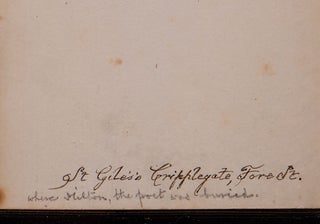 St Giles's Cripplegate, Fore St.
where Milton, the poet was buried.